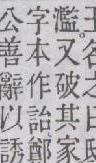 王名之曰
濫又破其家
字本作詒鄭
公善辭以誘